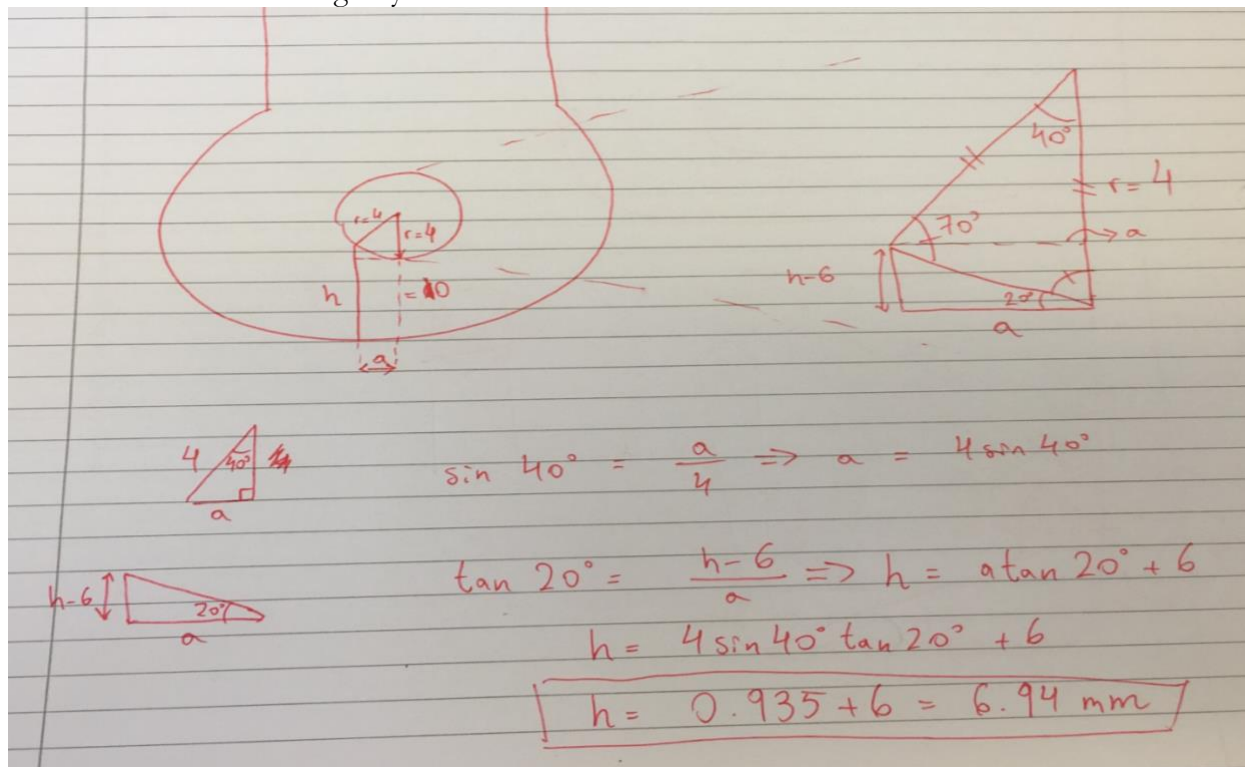 r=4
r=4
h
= 10
a
40°
r = 4
70°
a
h-6
20°
a
4
40°
a
sin 40° = a/4 => a = 4 sin 40°
h-6
20°
a
tan 20° = h-6/a => h = a tan 20° + 6
h = 4 sin 40° tan 20° + 6
h = 0.935 + 6 = 6.94 mm